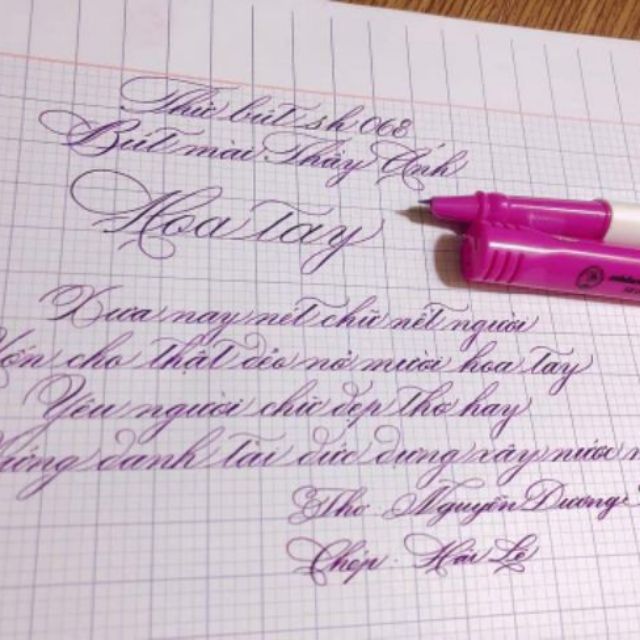 Thử bút sh 068
Bút mài Thầy Ánh
Hoa Tay
Xưa nay nét chữ nết người
cho thật dẻo nở mười hoa tay
Yêu người chữ đẹp thơ hay
danh tài đức dựng xây nước
Thơ Nguyễn Dương
Chép: Hải Lê